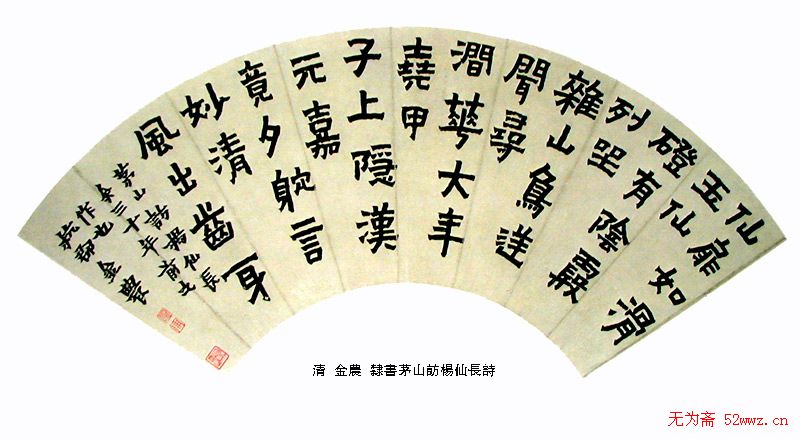 仙扉如滑
玉仙
磴有陰霞
列坐
雜山鳥送
聞尋
澗華大年
堯甲
子上隱漢
元嘉
竟夕躭言
妙清
風出齒牙
茅山訪楊仙長
三十年前之
作也
杭郡金農
清 金農 隸書茅山訪楊仙長詩
无为斋 52wwz.cn